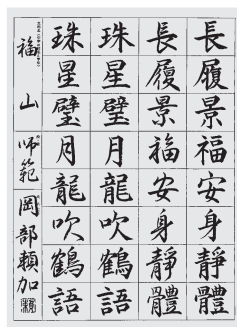 長履景福安身靜體
長履景福安身靜體
珠星璧月龍吹鶴語
珠星璧月龍吹鶴語
福山 師範 岡部賴加